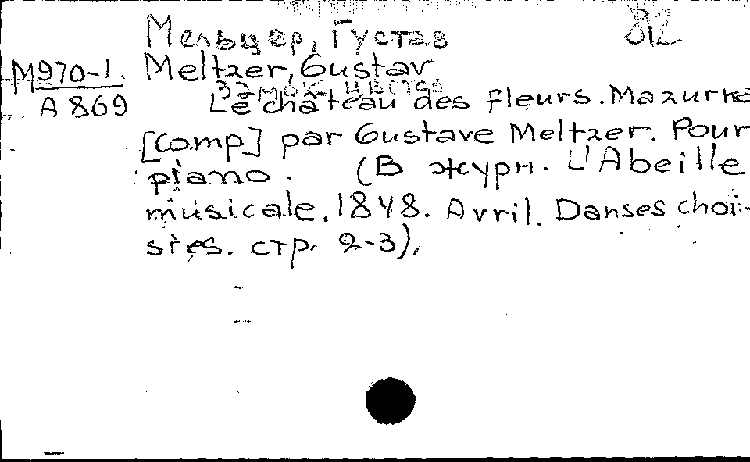 Мельцер, Густав 82
М970-1 Meltzer, Gustav
А 869 Замок цветов
Le château des fleurs. Mazurka
[comp] par Gustave Meltzer. Pour
piano. (В журн. L'Abeille
musicale, 1848. Avril. Danses choi-
sies. стр. 2-3).